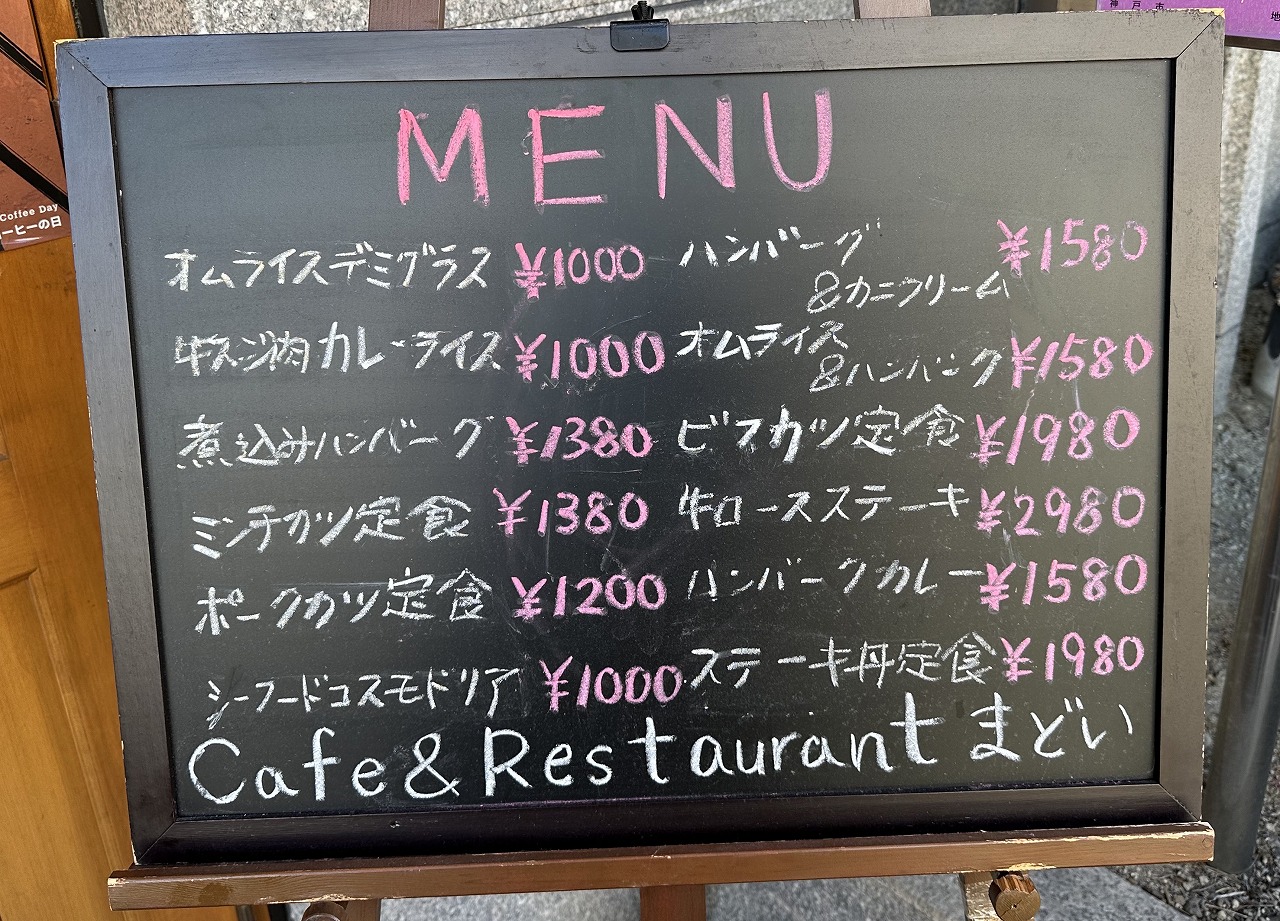 神戸市
地
Coffee Day
ーヒーの日
MENU
オムライスデミグラス ¥1000
牛スジ肉カレーライス ¥1000
煮込みハンバーグ ¥1380
ミンチカツ定食 ¥1380
ポークカツ定食 ¥1200
シーフードコスモドリア ¥1000
ハンバーグ ¥1580
&カニクリーム
オムライス
&ハンバーグ ¥1580
ビフカツ定食 ¥1980
牛ロースステーキ ¥2980
ハンバーグカレー ¥1580
ステーキ丼定食 ¥1980
Cafe & Restaurant まどい